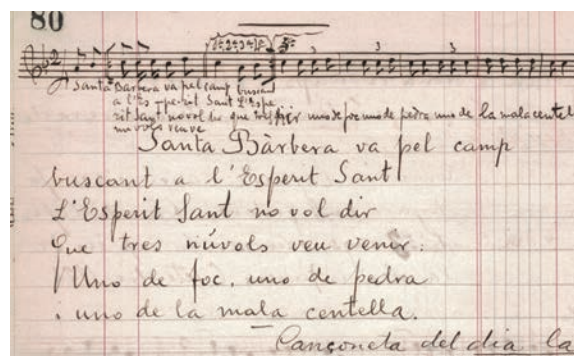 80
3 3 3
Santa Bàrbera va pel camp buscant
a l'Esperit Sant L'Espe
rit Sant no vol dir que tres uno de foc uno de pedra uno de la mala centel
núvols veu ve
Santa Bàrbera va pel camp
buscant a l'Esperit Sant
L'Esperit Sant no vol dir
Que tres núvols veu venir:
Uno de foc, uno de pedra
i uno de la mala centella.
Cançoneta del dia la